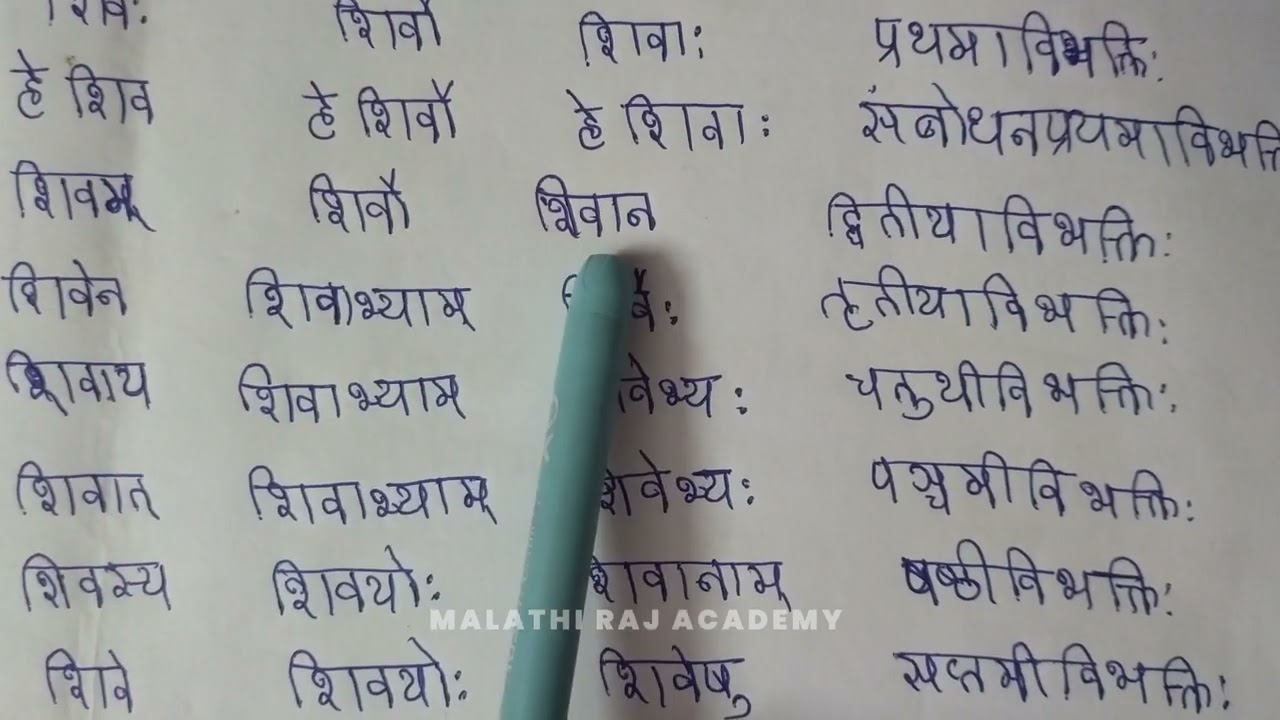 शिवः शिवौ शिवाः प्रथमाविभक्तिः
हे शिव हे शिवौ हे शिवाः संबोधनप्रथमाविभक्ति
शिवम् शिवौ शिवान द्वितीयाविभक्तिः
शिवेन शिवाभ्याम् तृतीयाविभक्तिः
शिवाय शिवाभ्याम् चतुथीविभक्तिः
शिवात् शिवाभ्याम् शिवेभ्यः पञ्चमीविभक्तिः
शिवस्य शिवयोः शिवानाम् षष्ठीविभक्तिः
MALATHI RAJ ACADEMY
शिवे शिवयोः शिवेषु सप्तमीविभक्तिः